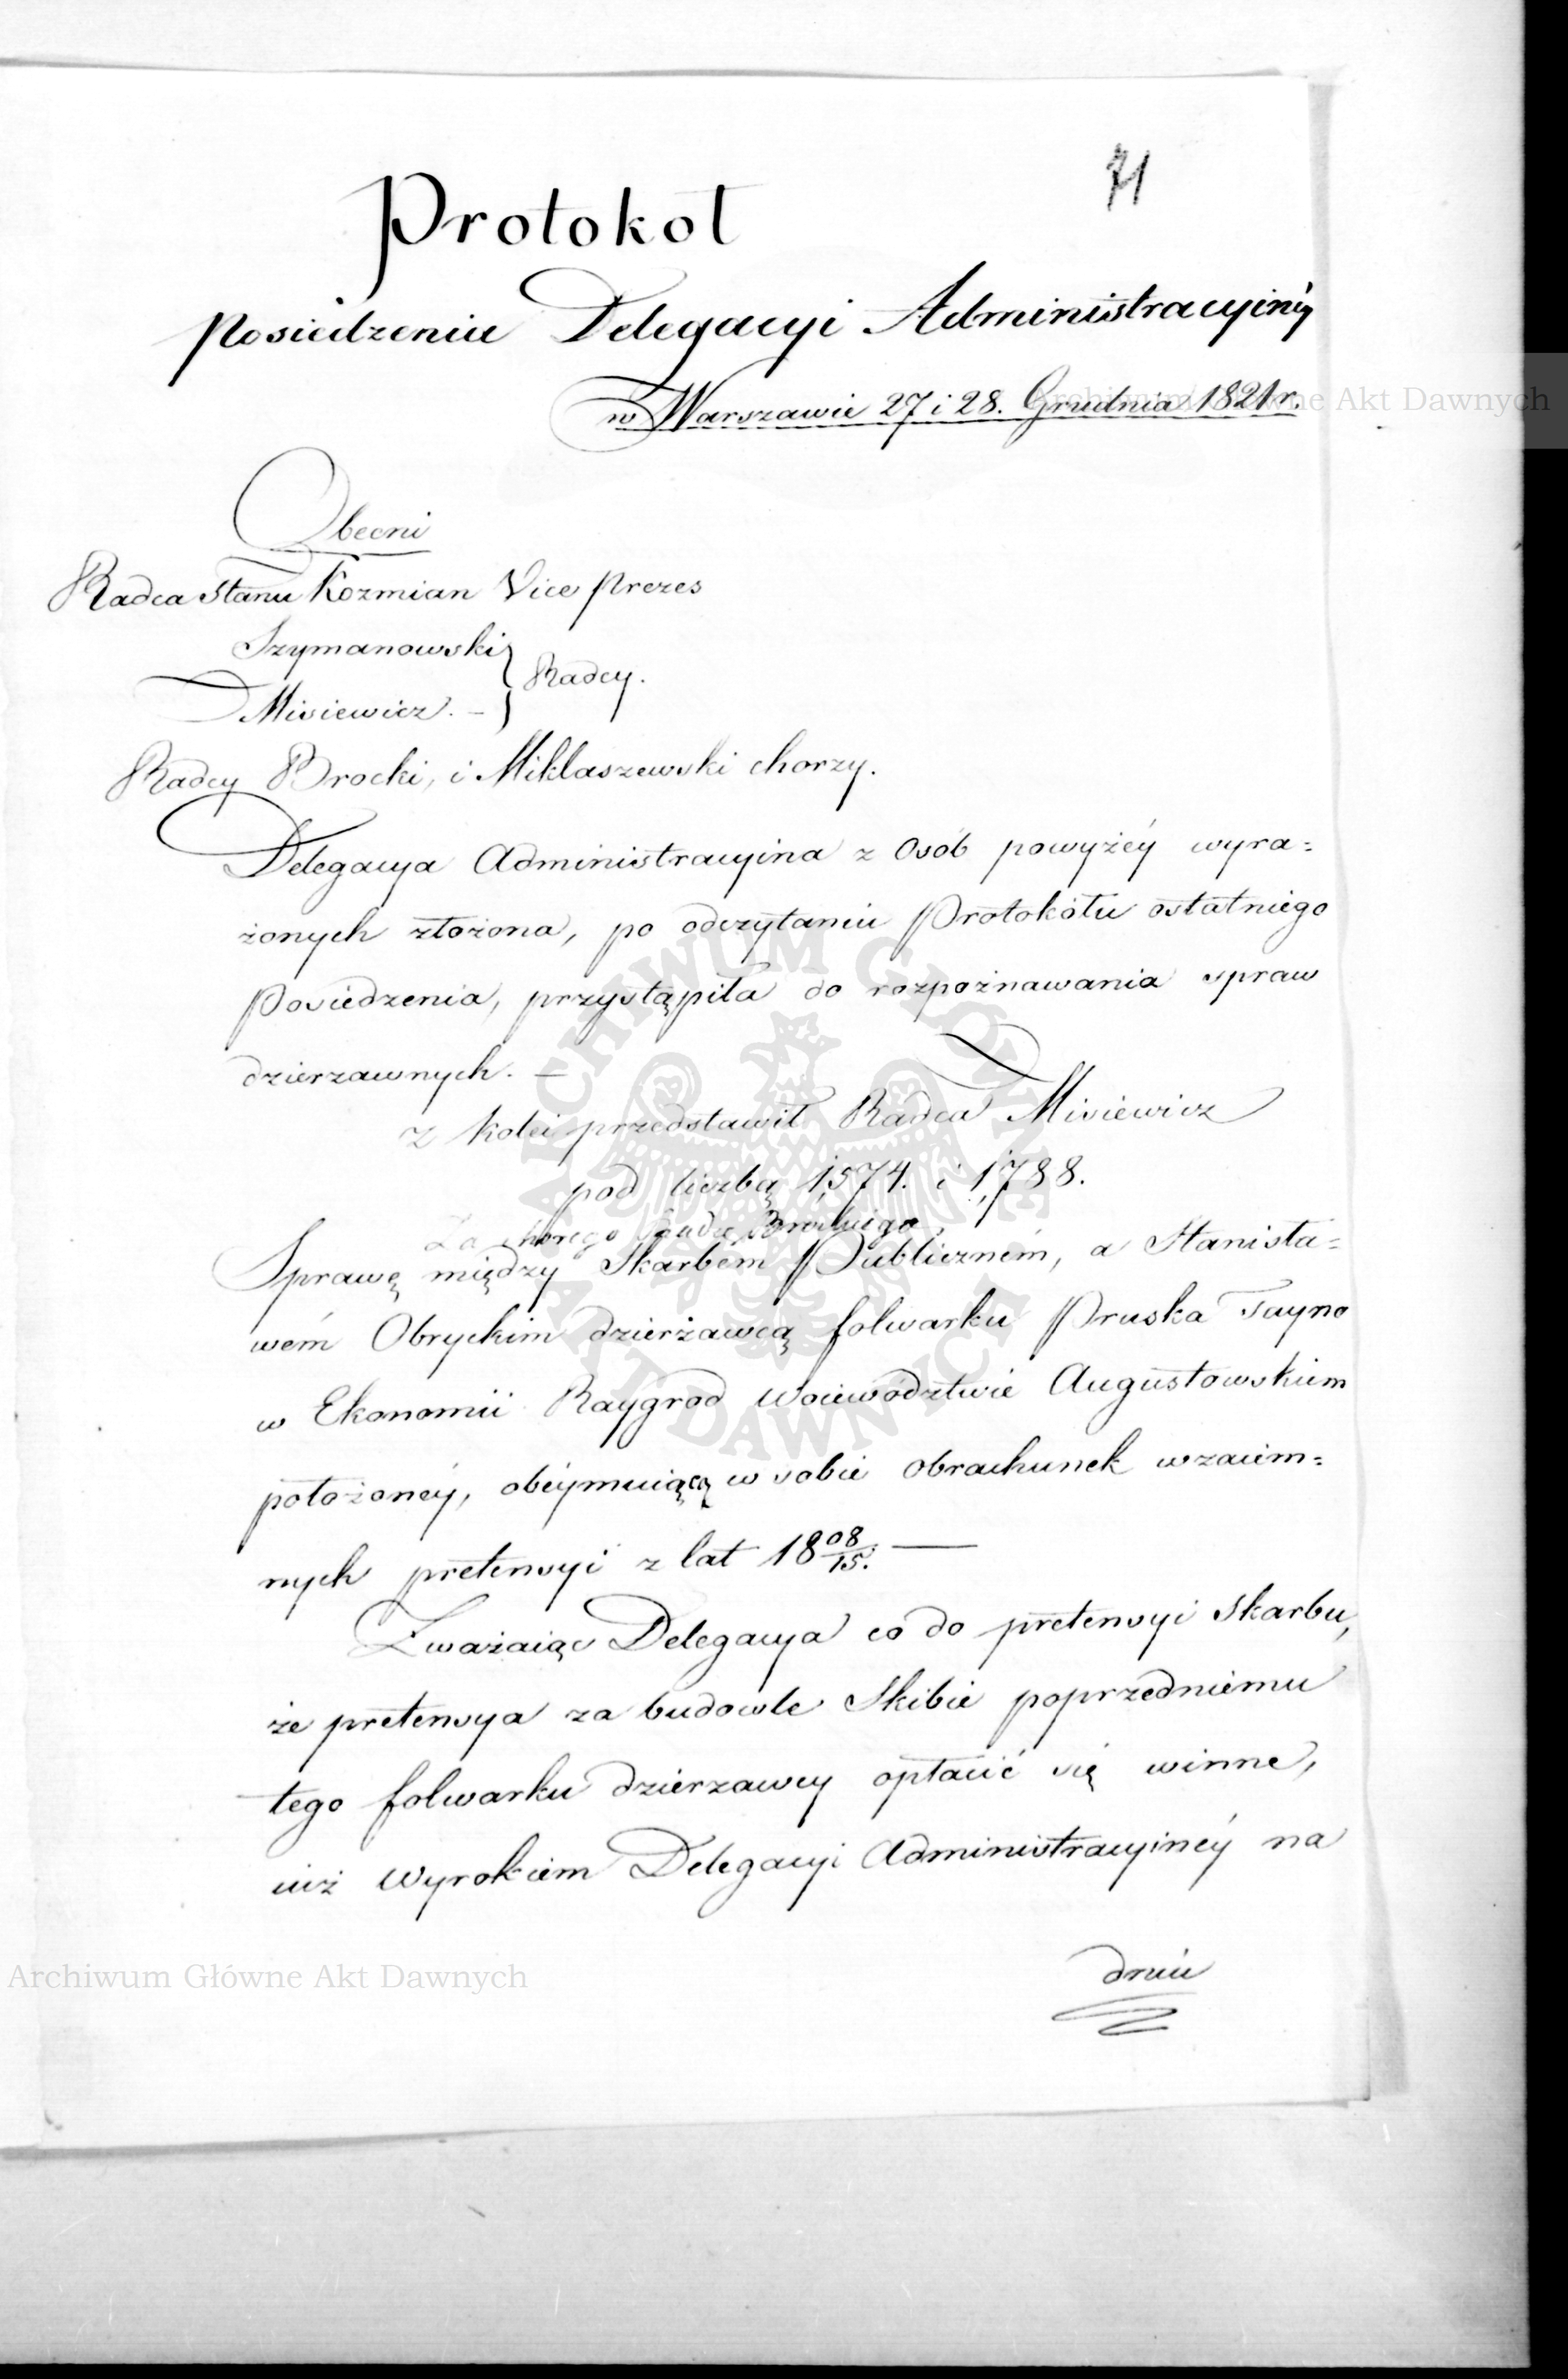 71
Protokół
Posiedzenia Delegacyi Administracyiney
w Warszawie 27 i 28. Grudnia 1821 r.
Archiwum Główne Akt Dawnych
Obecni
Radca Stanu Kozmian Vice Prezes
Szymanowski
Radcy.
Misiewicz. –
Radcy Brocki, i Miklaszewski chorzy.
Delegacya Administracyina z Osób powyżéy wyra=
żonych złożona, po odczytaniu Protokółu ostatniego
Posiedzenia, przystąpiła do rozpoznawania spraw
dzierzawnych. –
z kolei przedstawił Radca Misiewicz
pod liczbą 1,574. i 1,788.
Za chorego Radcę Brockiego
Sprawę między Skarbem Publiczném, a Stanisła=
wém Obryckim dzierżawcą folwarku Pruska Tayno
w Ekonomii Raygrod Woiewództwie Augustowskiem
położonéy, obéymuiącą w sobie Obrachunek wzaiem=
nych pretensyi z lat 18 08/15. —
Zważaiąc Delegacya co do pretensyi Skarbu,
że pretensya za budowle Skibie poprzedniemu
tego folwarku dzierzawcy opłacić się winne,
iuż Wyrokiem Delegacyi Administracyinéy na
dniu
ARCHIWUM GŁÓWNE AKT DAWNYCH
Archiwum Główne Akt Dawnych